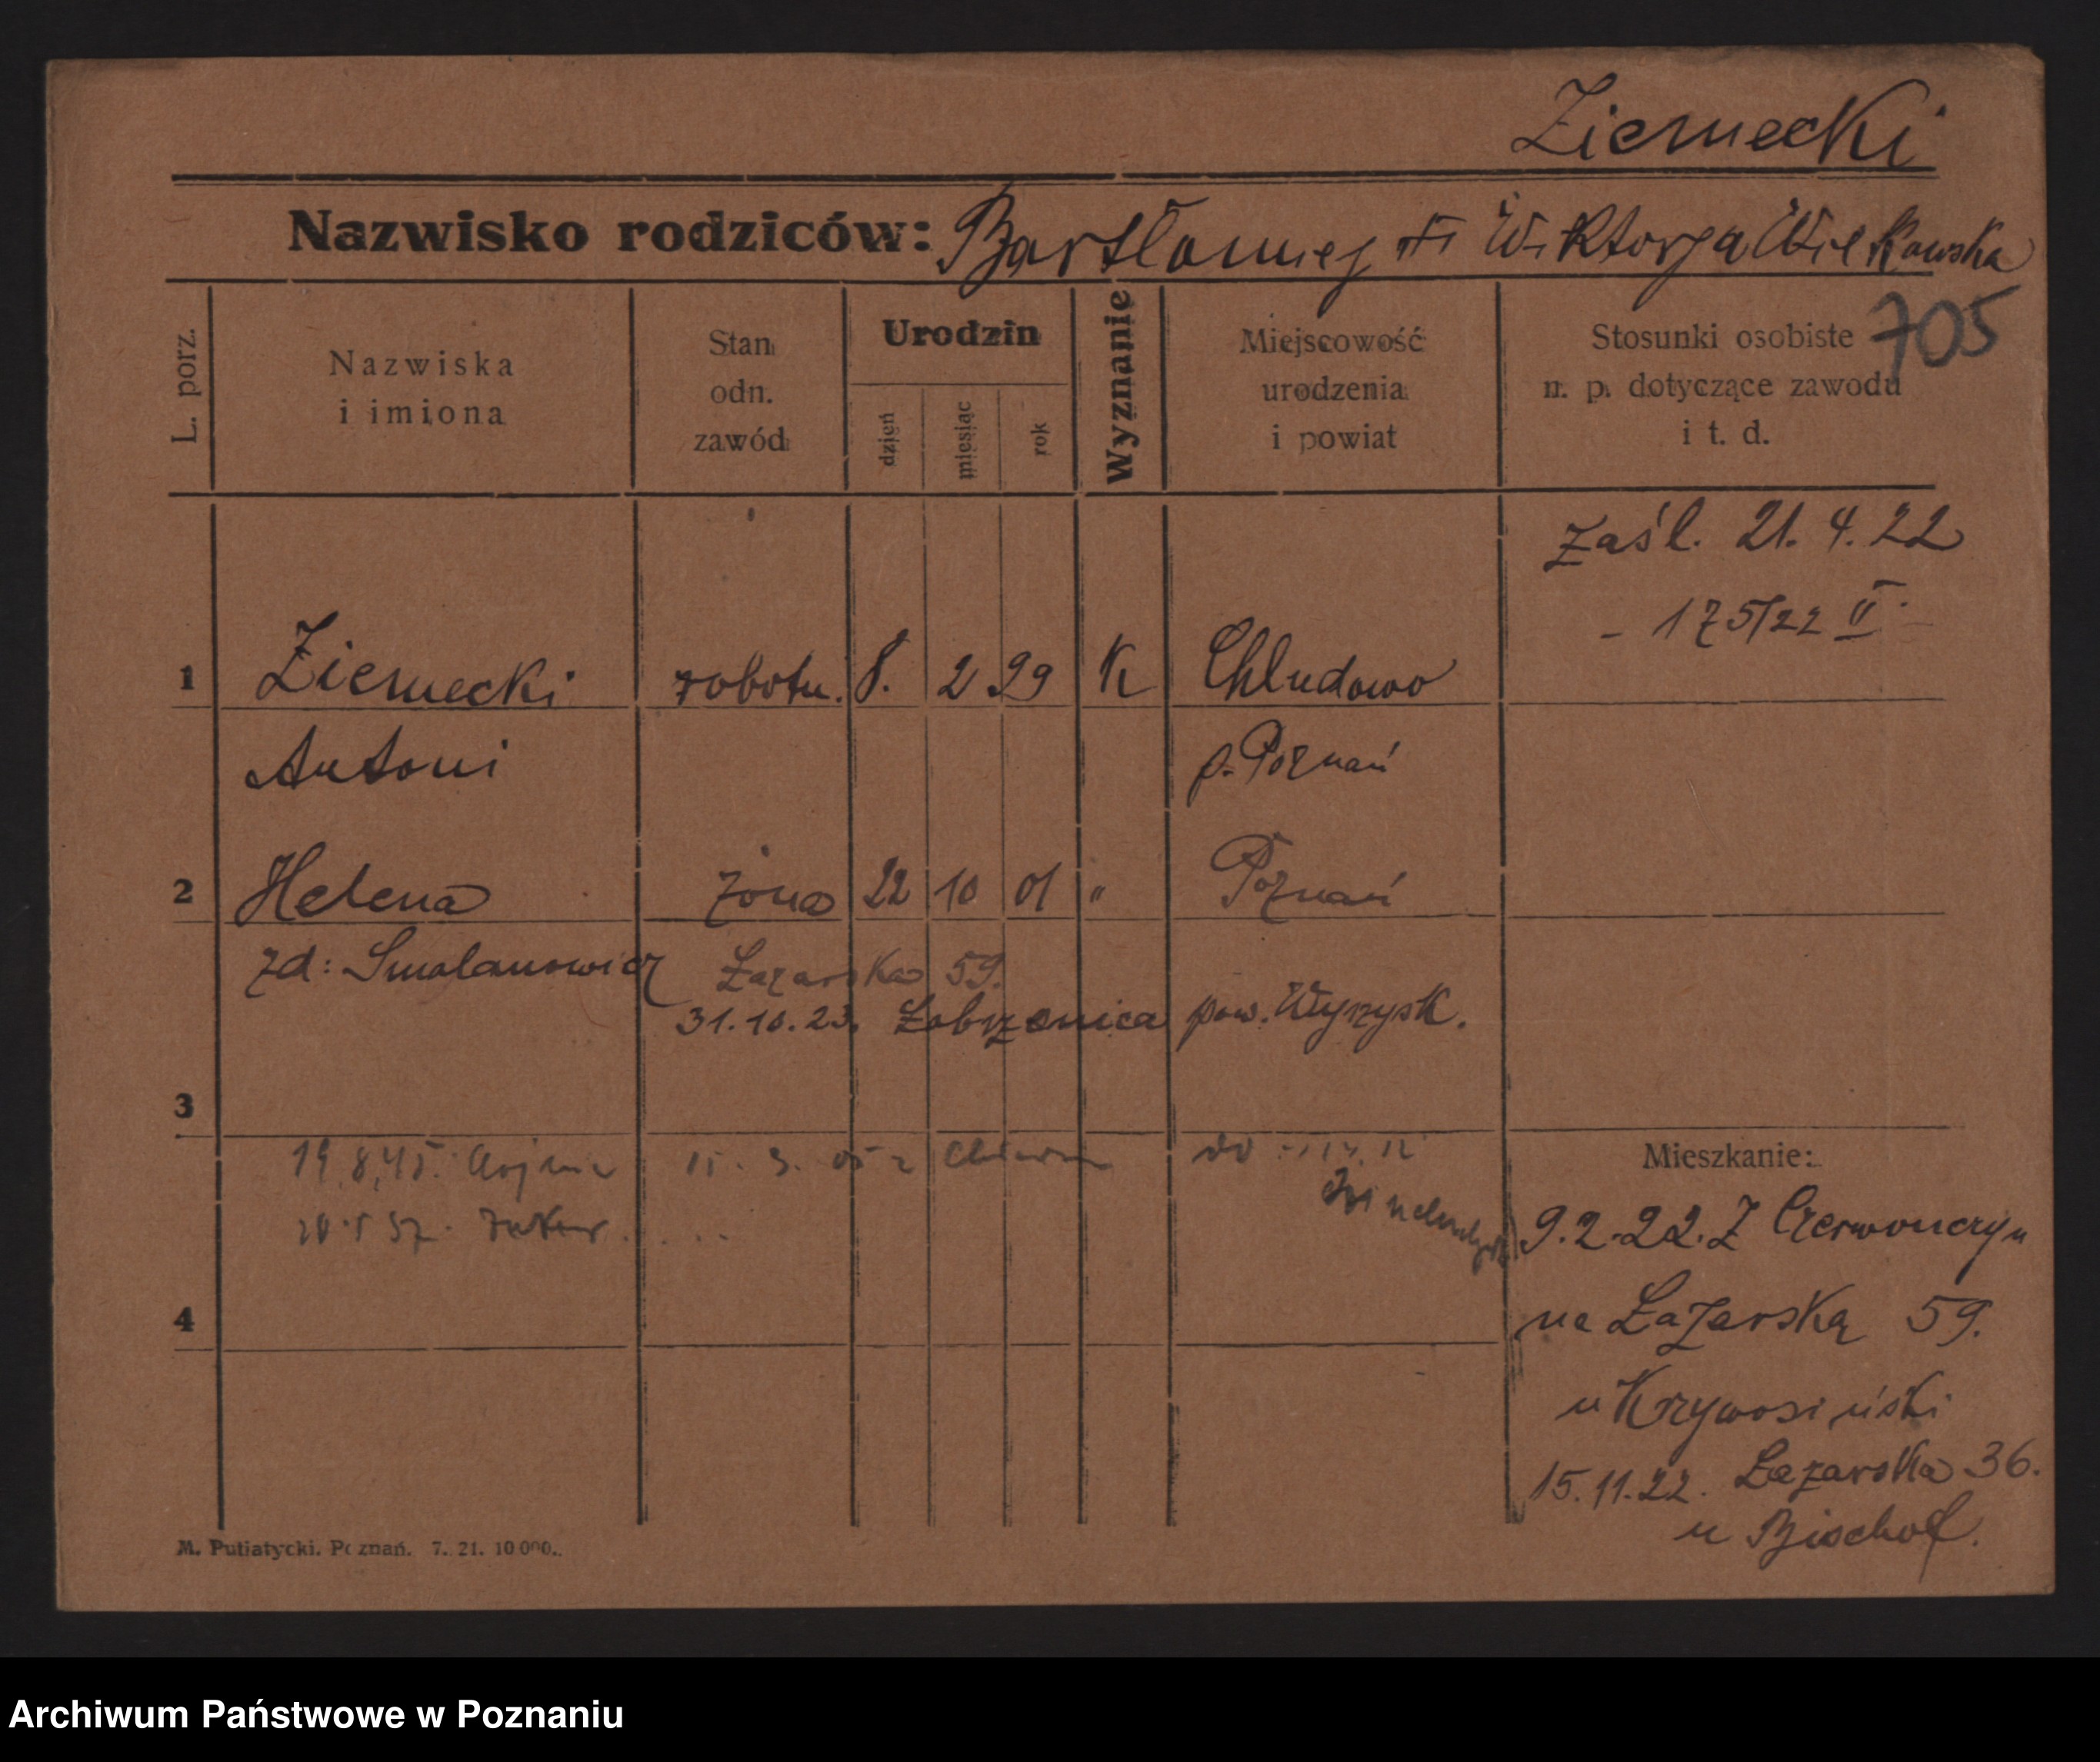 Ziemecki
Nazwisko rodziców: Bartłomiej i Wiktorja
705
L. porz.
Nazwiska i imiona
Stan odn. zawód
Urodzin
dzień miesiąc rok
Wyznanie
Miejscowość urodzenia i powiat
Stosunki osobiste n. p. dotyczące zawodu i t. d.
zaśl. 21. 4. 22
- 175/22 II -
1 Ziemecki robotn. 8. 2 99 K Chludowo
Antoni p. Poznań
2 Helena żona 22 10 01 " Poznań
zd: Smolanowicz Łazarska 59.
31.10.23. Łobrzenica pow. Wyrzysk.
3
4
Mieszkanie:
9.2.22. Z
na Łazarską 59.
u
15.11.22. Łazarska 36.
u Bischof.
M. Putiatycki. Poznań. 7. 21. 10 000.
Archiwum Państwowe w Poznaniu